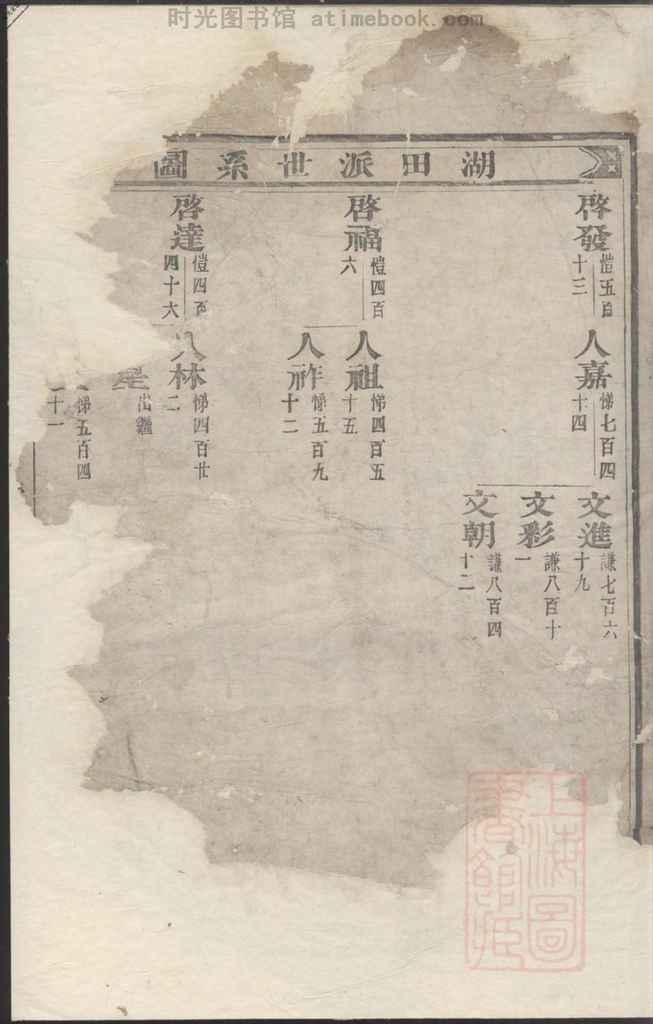 时光图书馆 atimebook.com
湖田派世系圖
啓發
愷五百
十三
人嘉
悌七百四
十四
文進
謙七百六
十九
文彩
謙八百十
一
文朝
謙八百四
十二
啓福
愷四百
六
人祖
悌四百五
十五
人祚
悌五百九
十二
啓達
愷四百
四十六
林
悌四百廿
二
出繼
悌五百四
十一
上海圖
書館藏